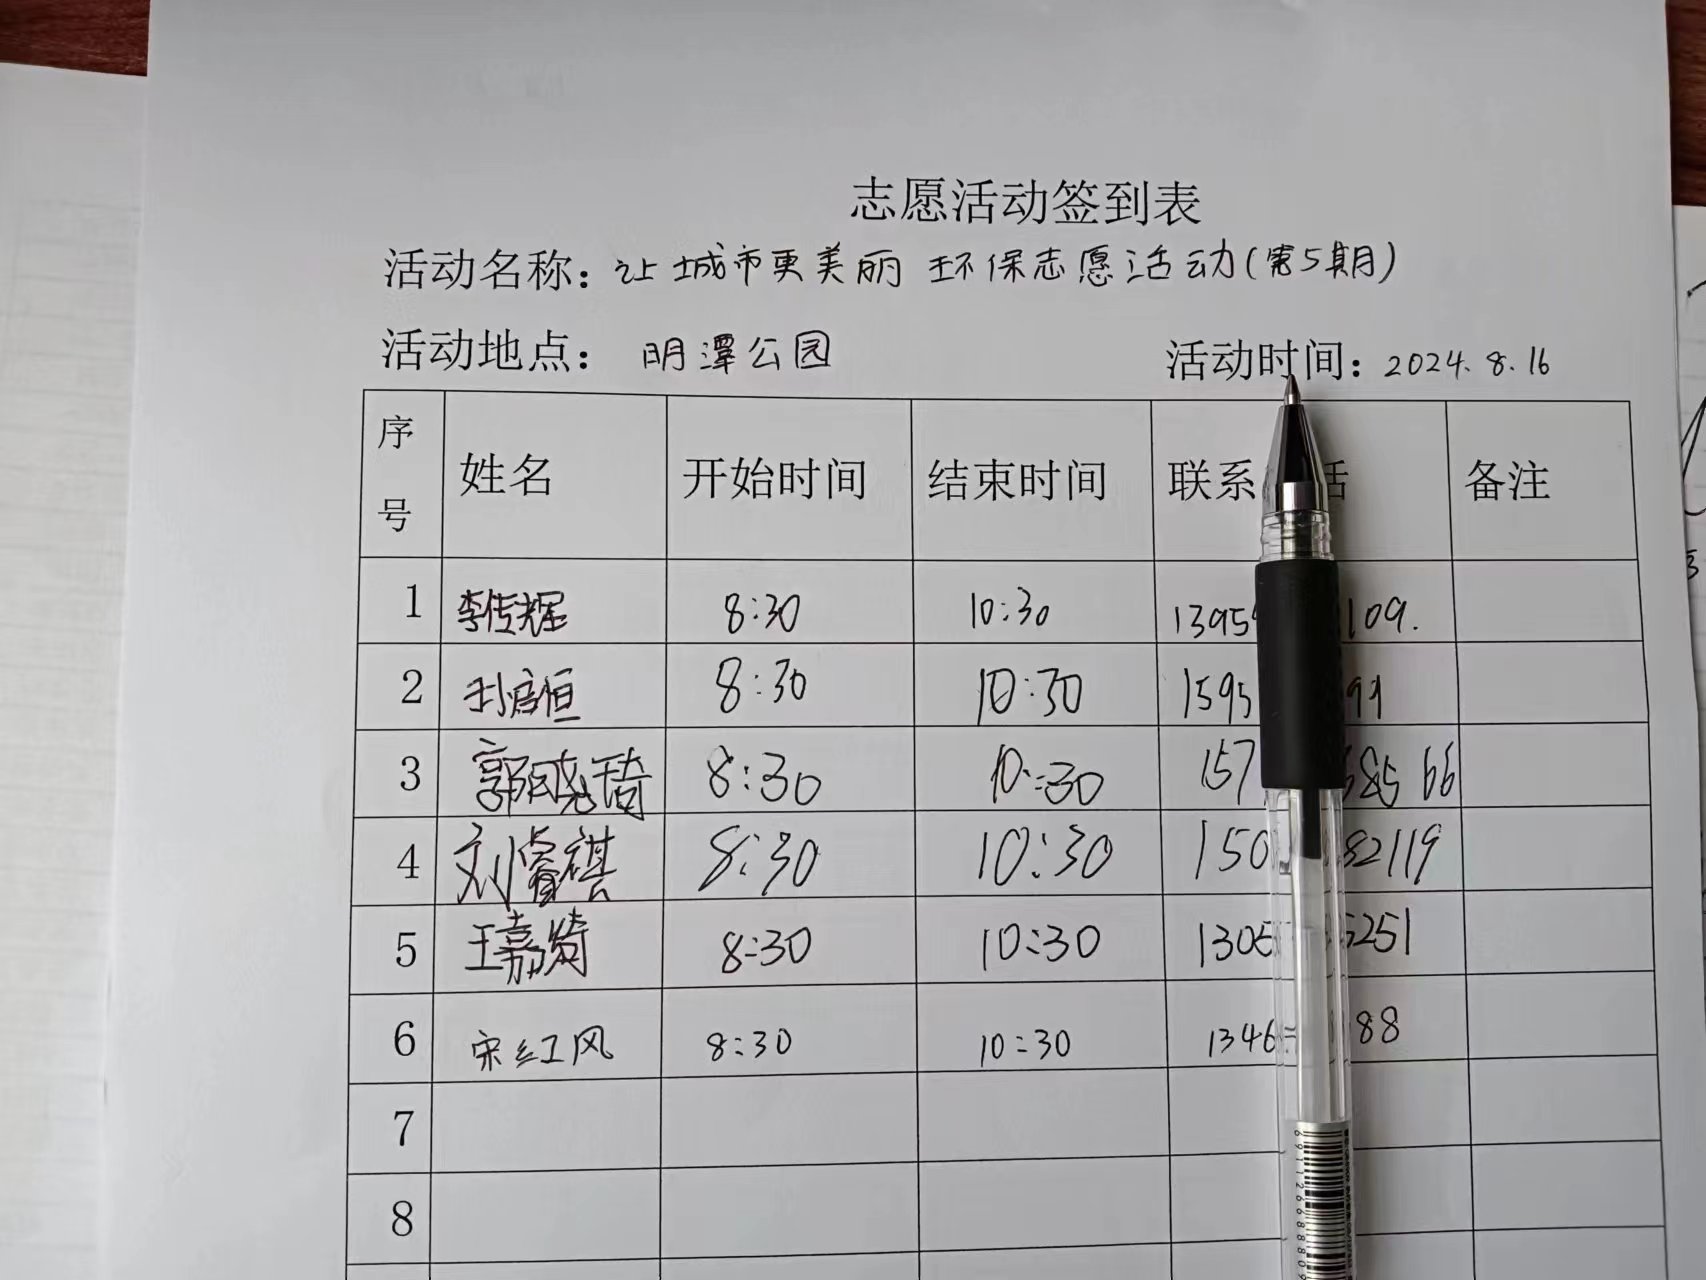 志愿活动签到表
活动名称：让城市更美丽 环保志愿活动(第5期)
活动地点：明潭公园 活动时间：2024.8.16
序号 姓名 开始时间 结束时间 联系 话 备注
1 李传辉 8:30 10:30 1395 1109.
2 恒 8:30 10:30 1595 99
3 郭晓琦 8:30 10:30 157 685 66
4 刘睿祺 8:30 10:30 150 82119
5 王嘉 8:30 10:30 1305 5251
6 宋红风 8:30 10:30 1346 88
7
8